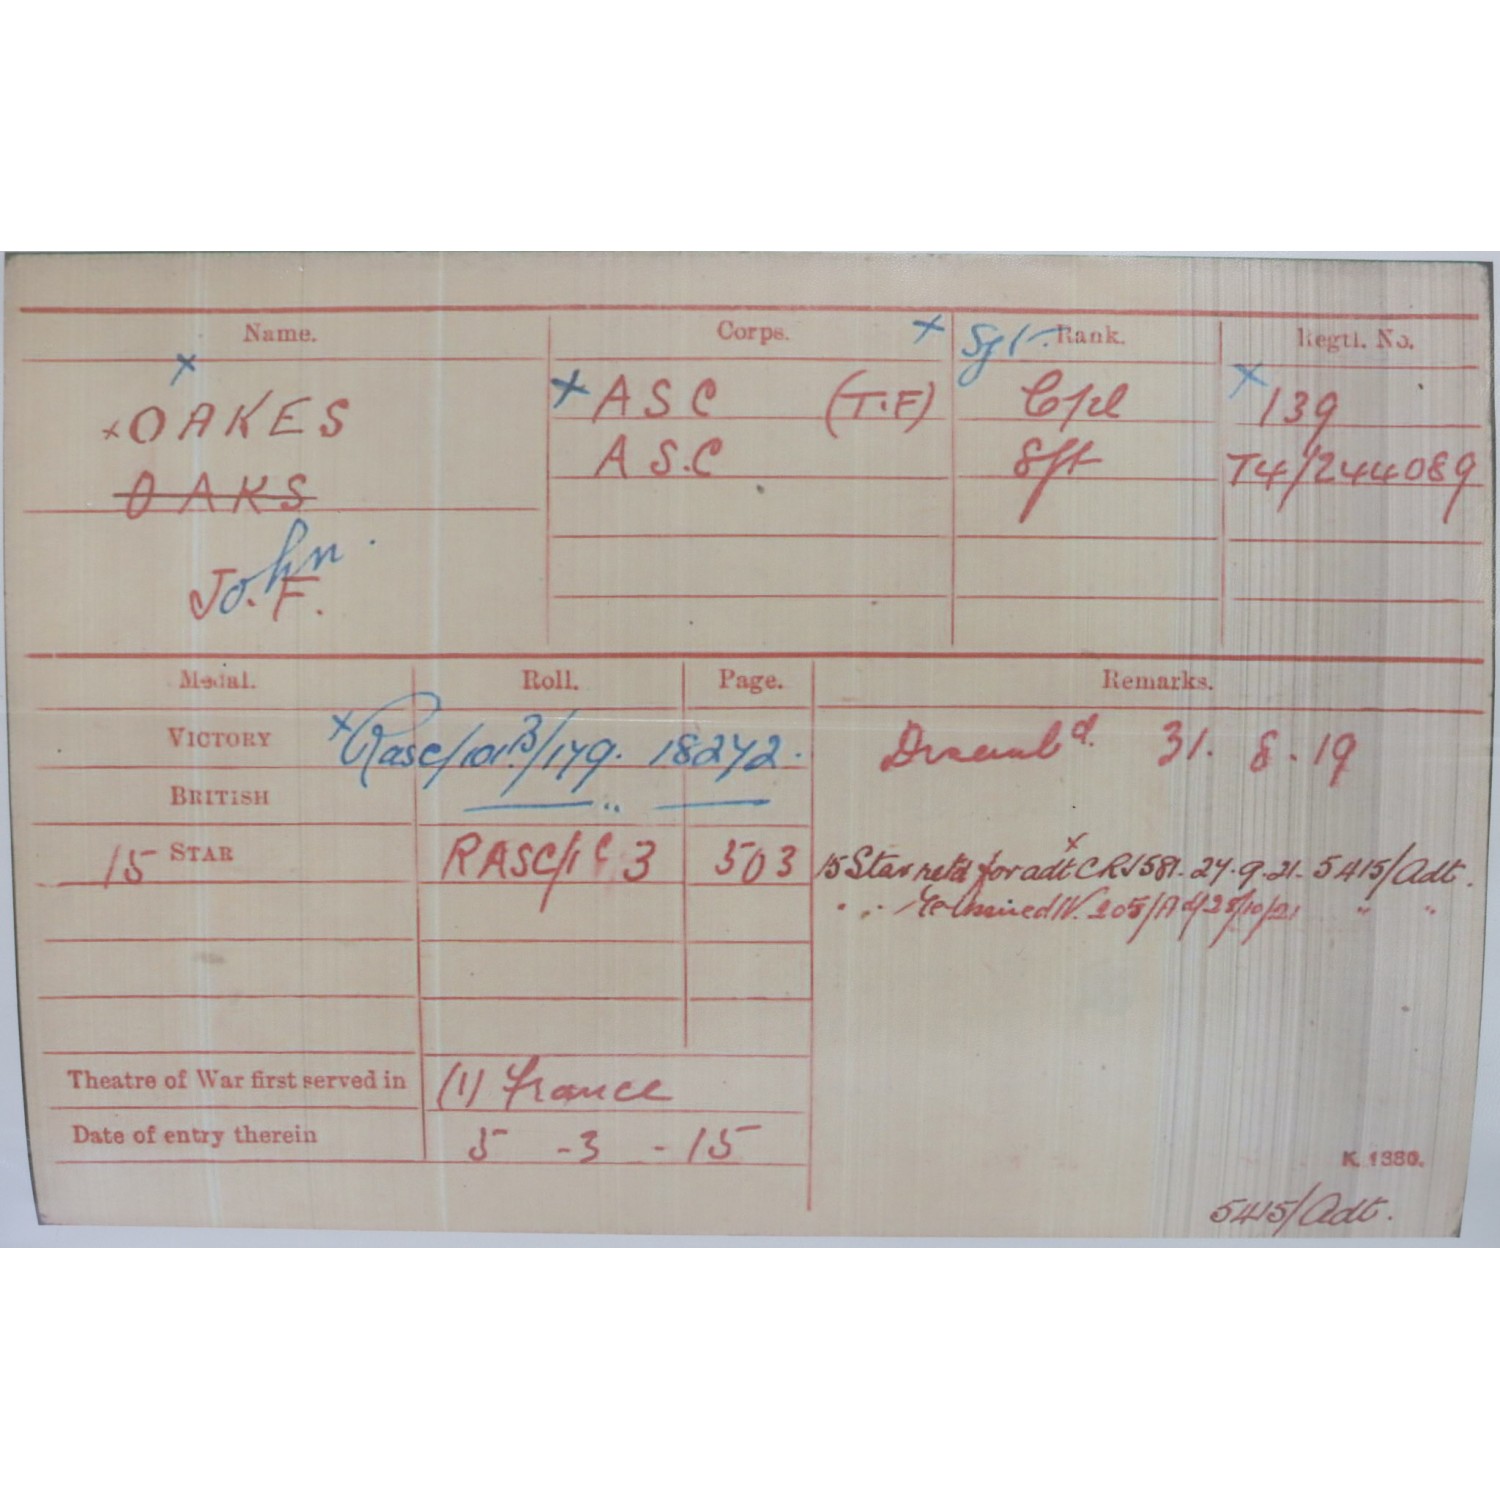 Name. Corps. × Sgt. Rank. Regtl. No.
×
× OAKES × ASC (T.F) Cpl × 139
OAKS A.S.C Sjt T4/244089
John.
J. F.
Medal. Roll. Page. Remarks.
VICTORY × Rasc/101B/179. 18272. 31. 8. 19
BRITISH — „ —
15 STAR RASC/1 C 3 503 15 Star retd for adt CR 1581. 27.9.21. 5415/Adt.
" " Re-issued IV. 205/Ad/25/10/21 " "
Theatre of War first served in (1) France
Date of entry therein 5 - 3 - 15
K. 1380.
5415/Adt.